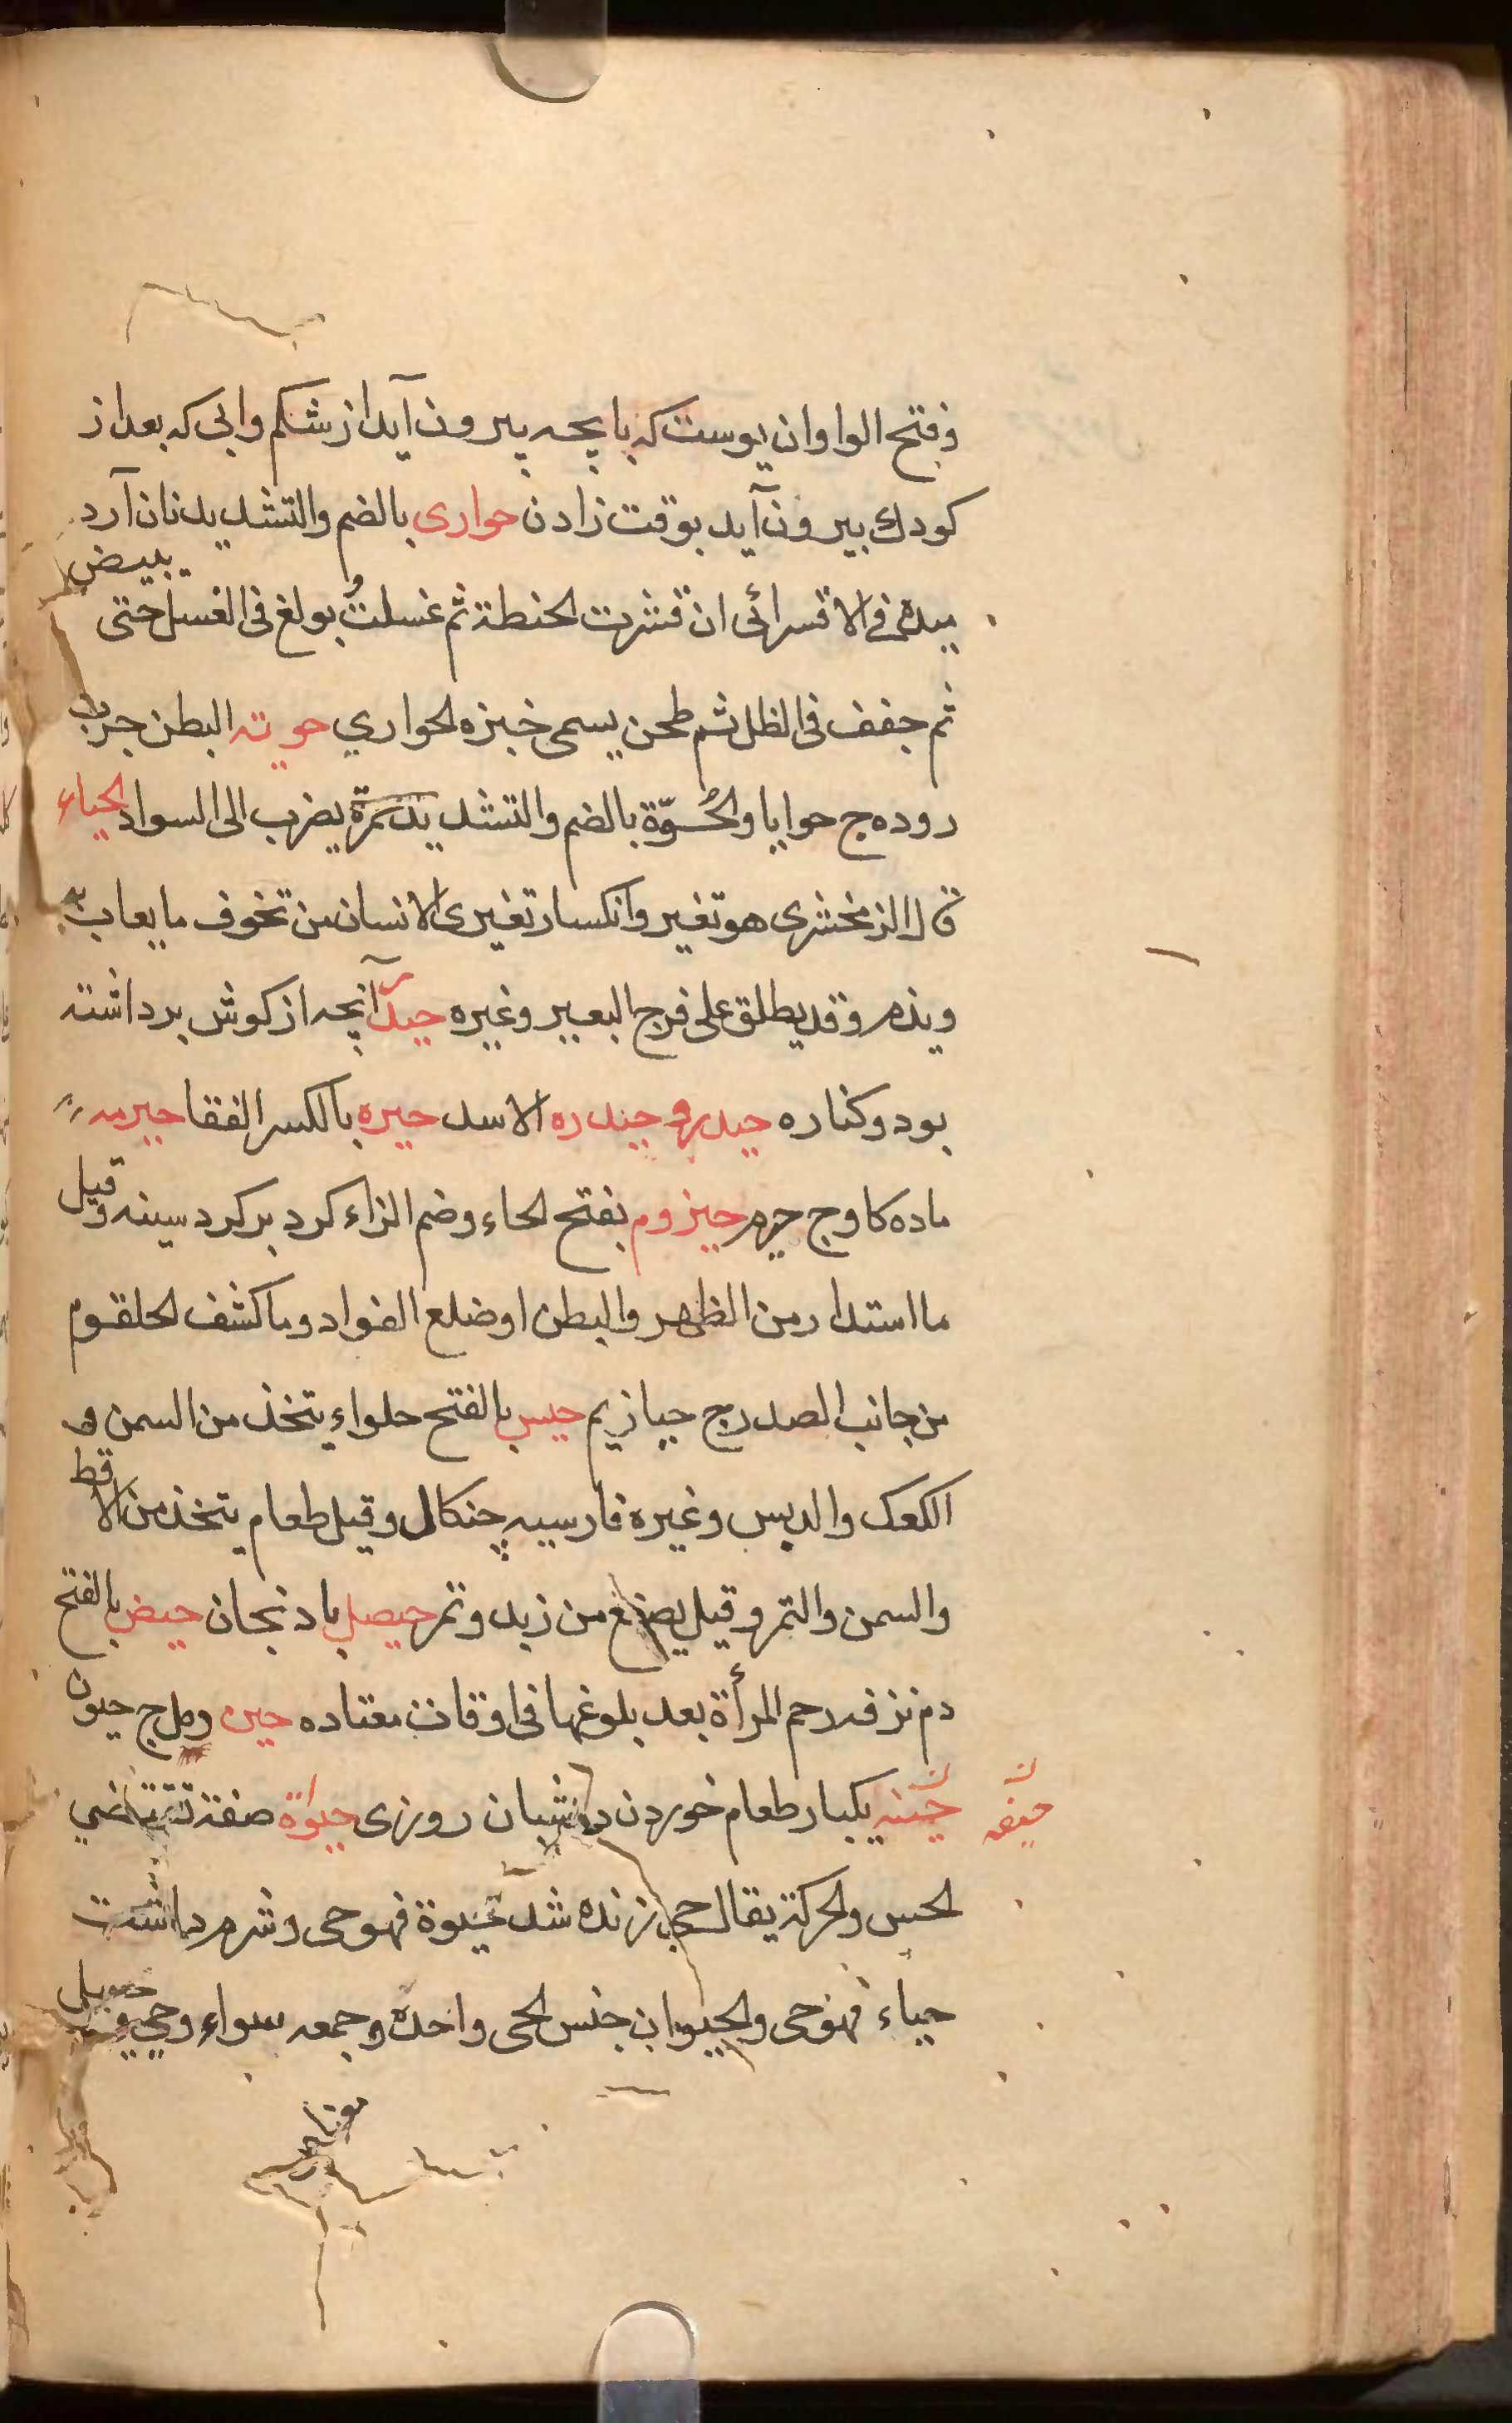 وفتح الواو ان پوست كه با بچه بيرون آيد از شكم وابى كه بعد از
كودك بيرون آيد بوقت زادن حوارى بالضم والتشديد نان آرد
ميده فى الاقسرائى ان قشرت الحنطة ثم غسلت وبولغ فى الغسل حتى يبيض
ثم جفف فى الظل ثم طحن يسمى خبزه الحواري حويته البطن چرب
روده ج حوايا والحُوّة بالضم والتشديد سمرة يضرب الى السواد الحياء
قال الزمخشرى هو تغير وانكسار تغيرى الانسان من تخوف ما يعاب به
ويذم وقد يطلق على فرج البعير وغيره حيد آنچه از كوش برداشته
بود وكناره حيدر وحيدره الاسد حيره بالكسر القفا حيرمه
ماده كاو ج حيرم حيزوم بفتح الحاء وضم الزاء كرد بر كرد سينه وقيل
ما استدار من الظهر والبطن او ضلع الفواد وما كشف الحلقوم
من جانب الصدر ج حيازيم حيس بالفتح حلواء يتخذ من السمن و
الكعك والدبس وغيره فارسيه چنكال وقيل طعام يتخذ من الاقط
والسمن والتمر وقيل يصنع من زبد وتمر حيصل بادنجان حيض بالفتح
دم نزفه رحم المرأة بعد بلوغها فى اوقات معتاده حين ج حيون
حينه يكبار طعام خوردن در شبان روزى حيوة صفة تقتضي
الحس والحركة يقال حى زنده شد حيوة فهو حى وشرم داشت
حياء فهو حى والحيوان جنس الحى واحده وجمعه سواء وحي